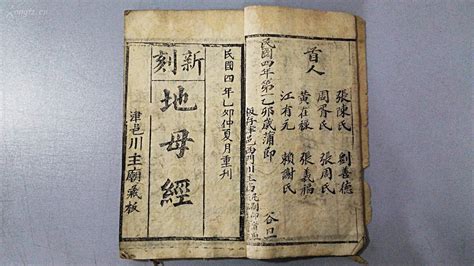 首人
張陳氏 劉善德
張周氏
黃在 張義福
江有元 賴謝氏
民國四年第一乙卯歲蒲 谷旦
民國四年乙卯仲夏月重刊
新刻
地母經
津邑川主廟藏板